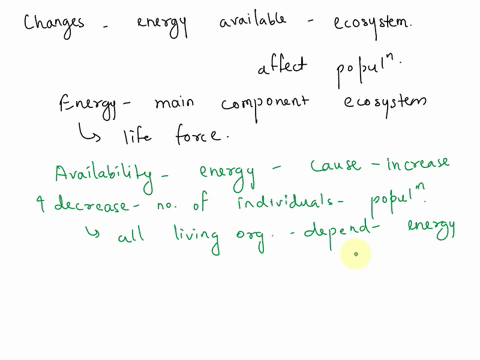 Changes - energy available - ecosystem.
affect populⁿ.
Energy - main component ecosystem
↳ life force.
Availability - energy - cause - increase
& decrease - no. of individuals - populⁿ
↳ all living org. - depend - energy